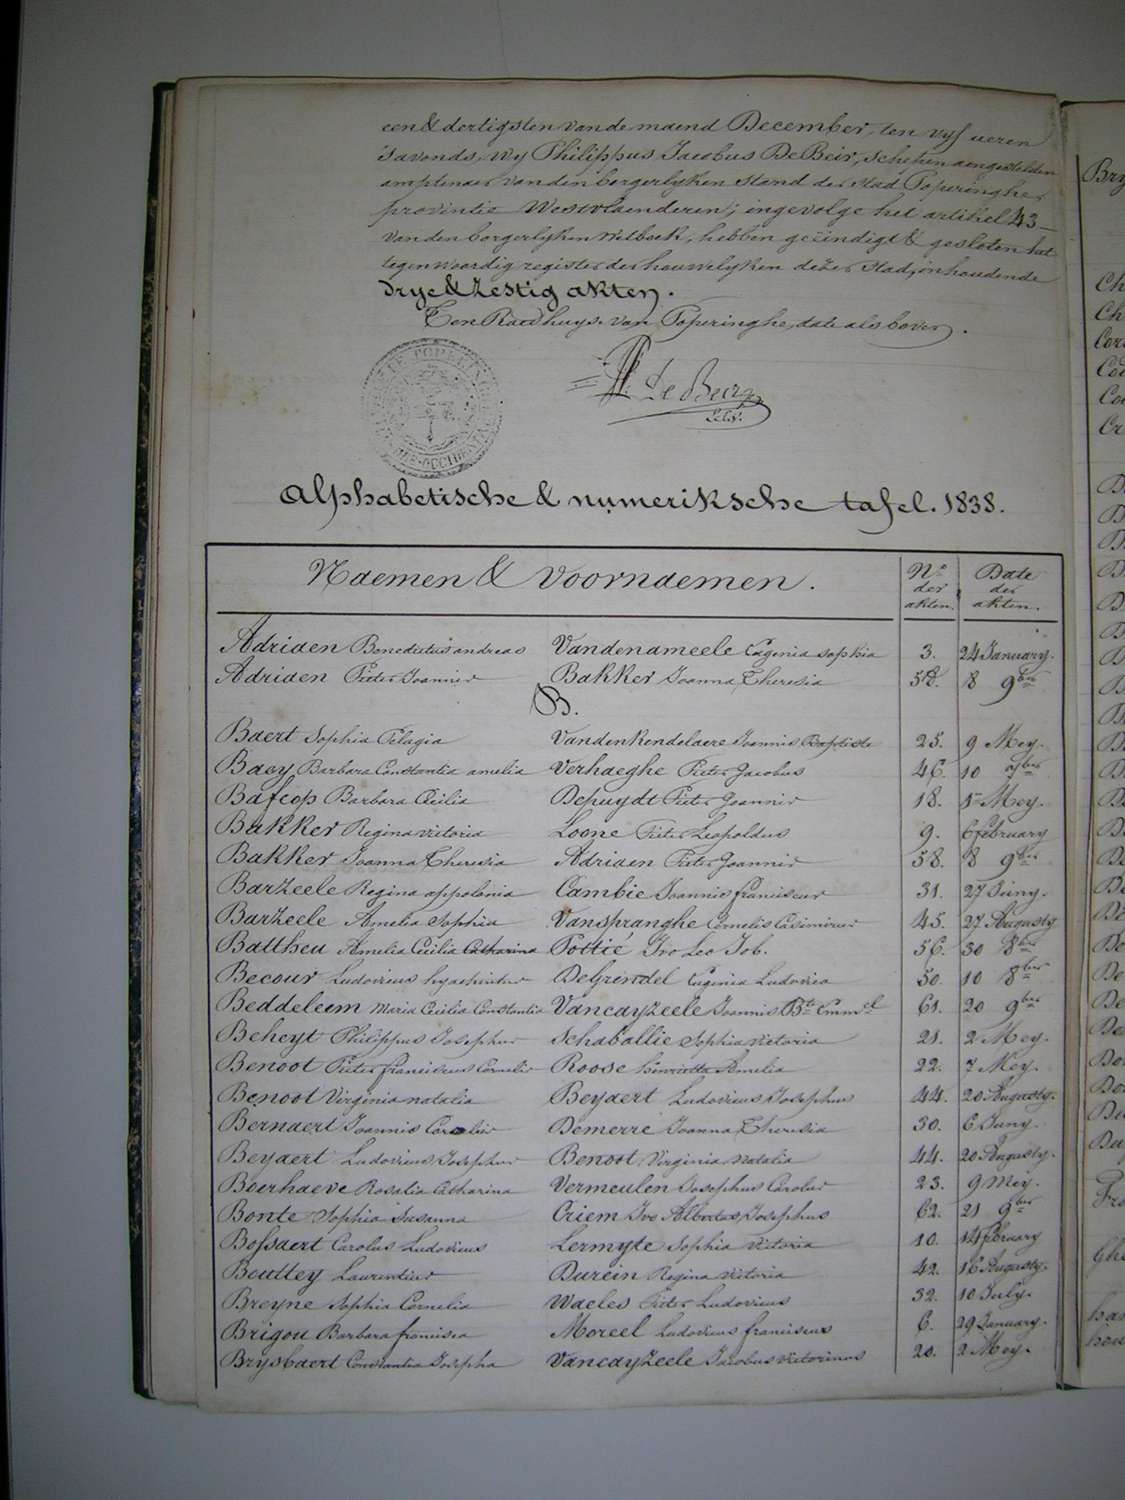 een & dertigsten van de maend December, ten vyf ueren
'savonds, wy Philippus Jacobus De Beir, schepen aengestelden
amptenaer van den borgerlyken stand der stad Poperinghe,
provintie Westvlaenderen; ingevolge het artikel 43
van den borgerlyken wetboek, hebben geëindigt & gesloten het
tegenwoordig register der houwelyken dezer stad, inhoudende
drye & zestig akten.
Ten Raedhuyse van Poperinghe, date als boven.
Alphabetische & numeriksche tafel. 1838.
Naemen & Voornaemen. No der akten. Date der akten.
Adriaen Benedictus andreas Vandenameele Eugenia sophia 3. 24 January.
Adriaen Pieter Joannis Bakker Joanna Theresia 58. 8 9bre
B.
Baert Sophia Pelagia Vandenkendelaere Joannis Baptiste 25. 9 Mey.
Baey Barbara Constantia amelia Verhaeghe Pieter Jacobus 46. 10 7bre
Bafcop Barbara Cecilia Depuydt Pieter Joannis 18. 1 Mey.
Bakker Regina victoria Loone Pieter Leopoldus 9. 6 february
Bakker Joanna Theresia Adriaen Pieter Joannis 58. 8 9bre
Barzeele Regina appolonia Cambie Joannis franciscus 31. 27 Juny.
Barzeele Amelia Sophia Vanspranghe Cornelis Casimirus 45. 27 Augusty
Battheu Amelia Cecilia Catharina Pottie Ivo Leo Job. 56. 30 8bre
Becour Ludovicus hyachintus DeGrendel Eugenia Ludovica 50. 10 8bre
Beddeleem Maria Cecilia Constantia Vancayzeele Joannis Bte Emmel 61. 20 9bre
Beheyt Philippus Josephus Schaballie Sophia victoria 21. 2 Mey.
Benoot Pieter franciscus Cornelis Roose henrietta Amelia 22. 7 Mey.
Benoot Virginia natalia Beyaert Ludovicus Josephus 44. 20 Augusty.
Bernaert Joannis Demerre Joanna Theresia 30. 6 Juny.
Beyaert Ludovicus Josephus Benoot Virginia natalia 44. 20 Augusty.
Boerhaeve Rosalia Catharina Vermeulen Josephus Carolus 23. 9 Mey.
Bonte Sophia Susanna Criem Ivo Albertus Josephus 62. 21 9bre
Bossaert Carolus Ludovicus Lermyte Sophia victoria 10. 14 february
Bouttey Laurentius Durein Regina victoria 42. 16 Augusty.
Breyne Sophia Cornelia Waeles Pieter Ludovicus 32. 10 July.
Brigou Barbara francisca Moreel Ludovicus franciscus 6. 29 January.
Brysbaert Constantia Josepha Vancayzeele Jacobus victorinus 20. 2 Mey.